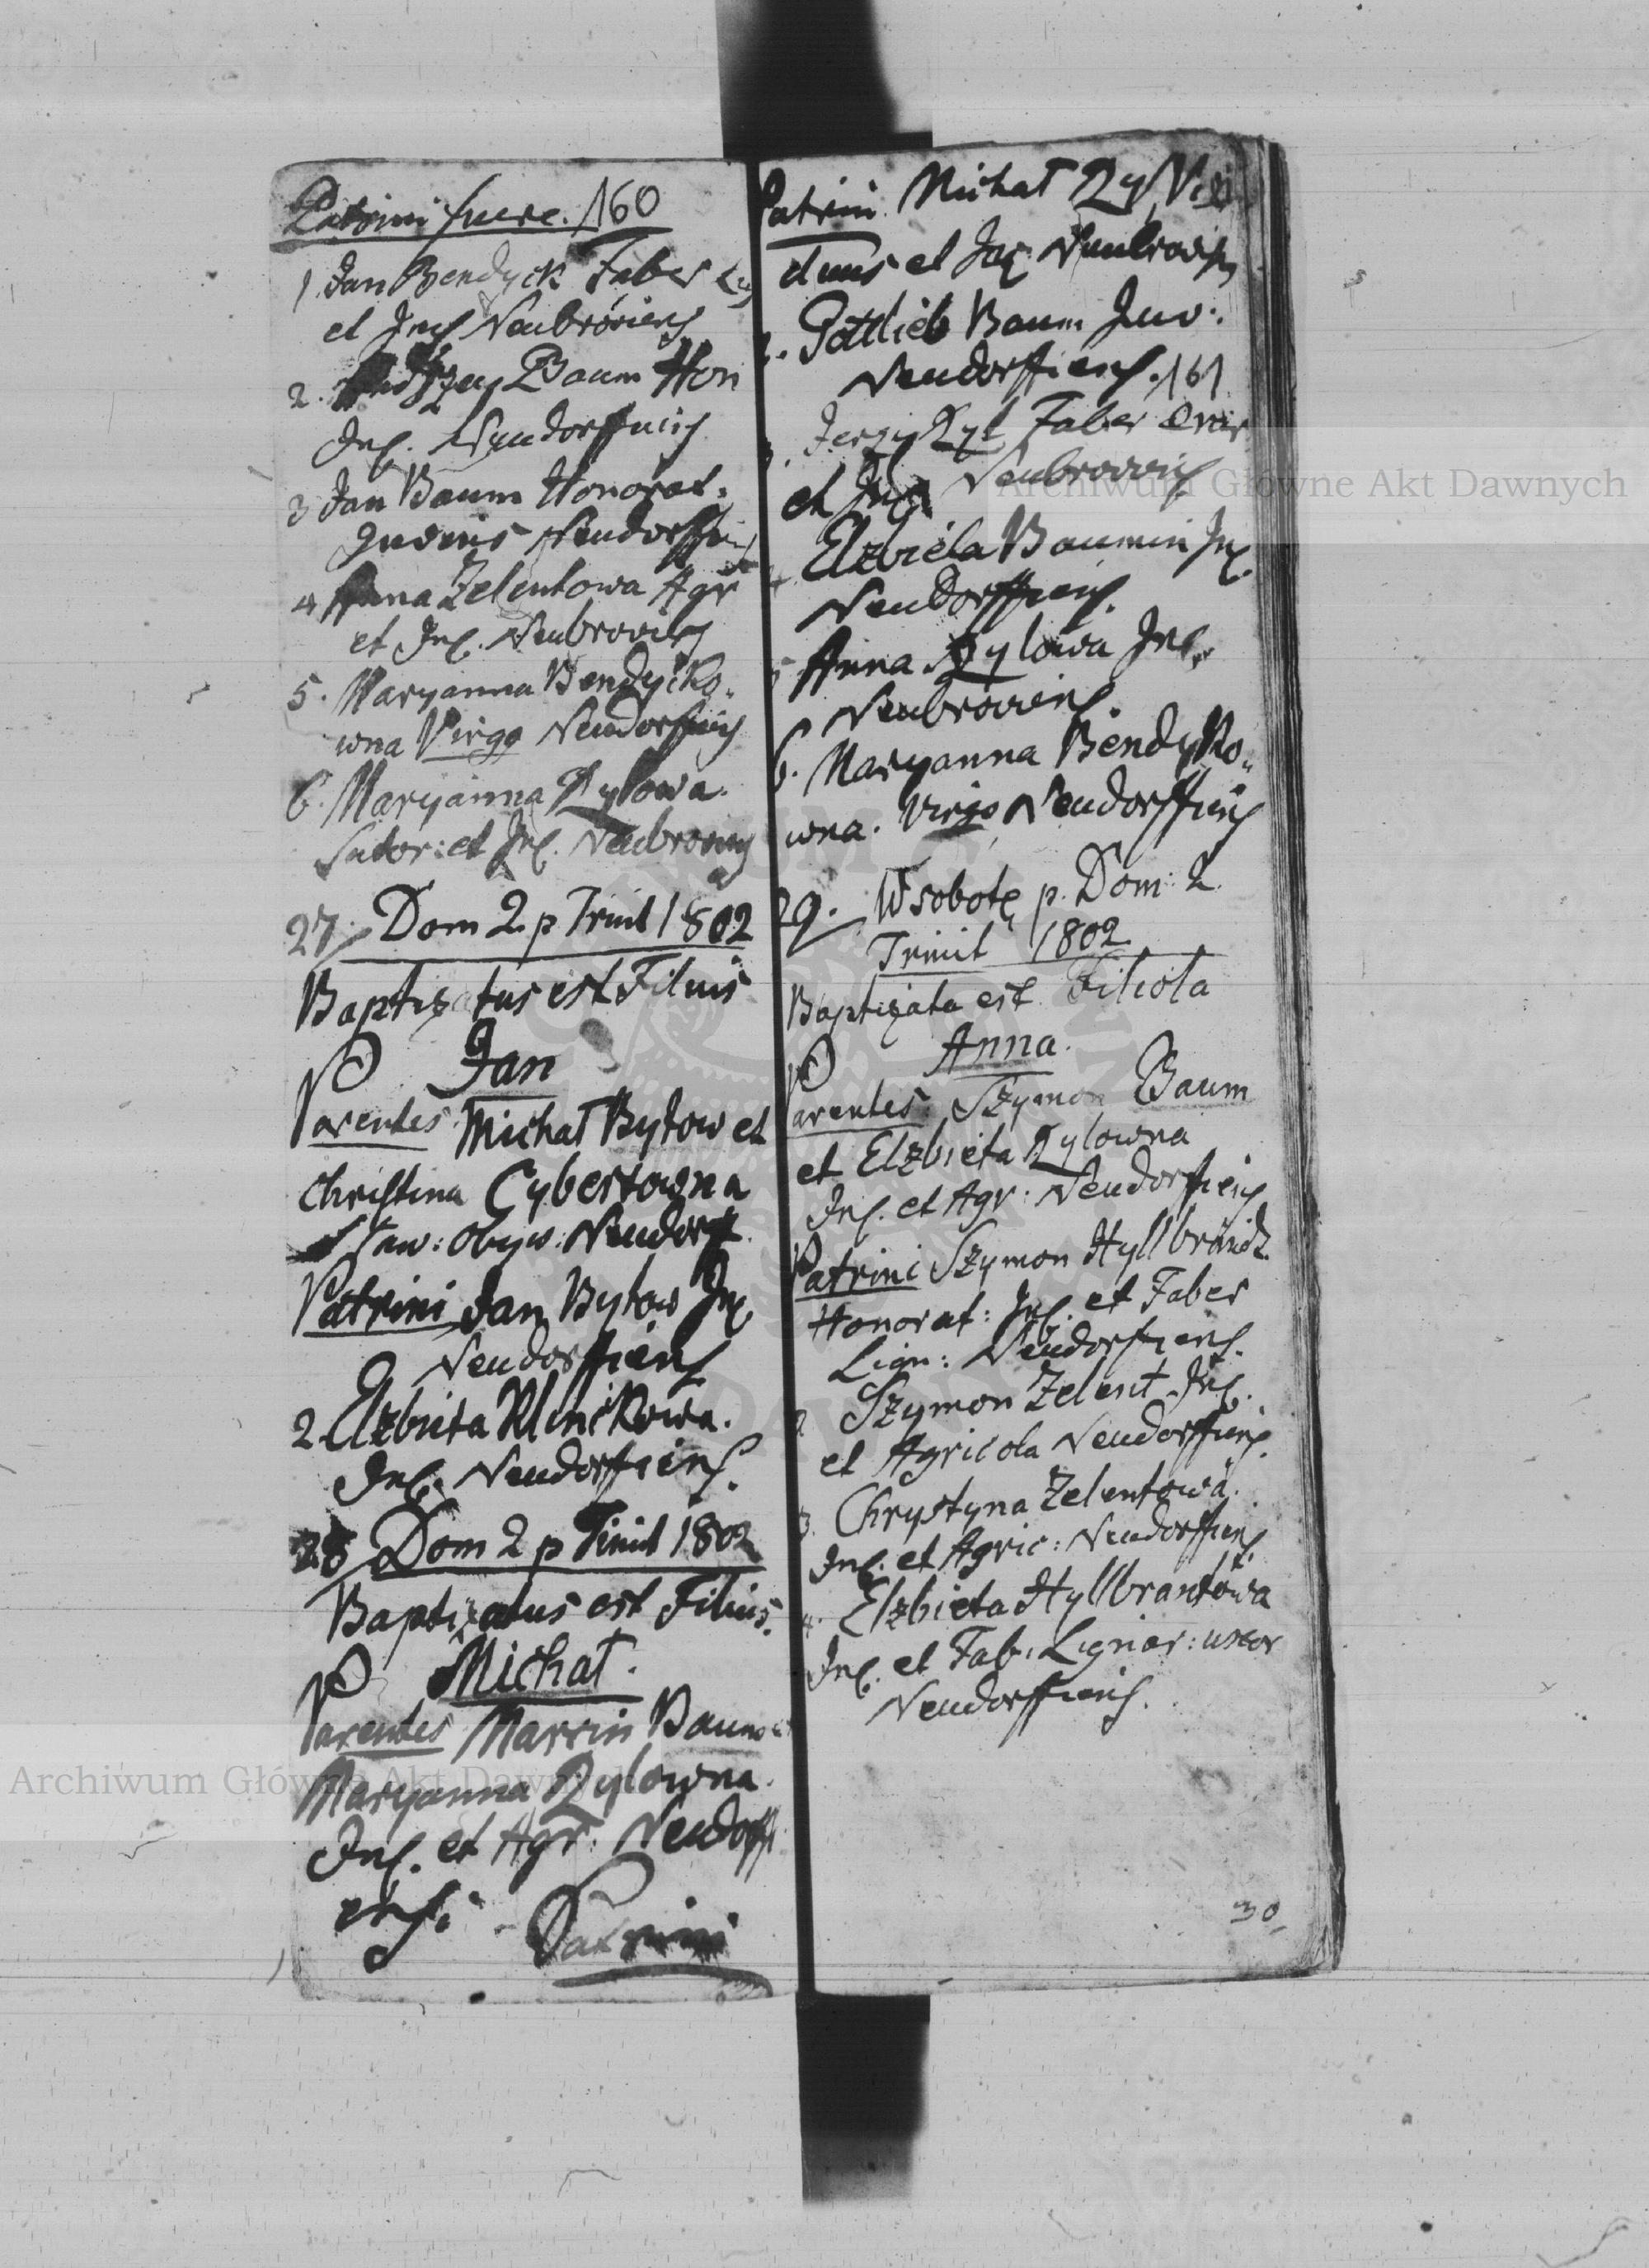 Patrini fuere. 160
1 Jan Bendyck Faber
et Inq Neubroviens
2. Baum Hon
Inq. Neudorffiens
3 Jan Baum Honorat.
Juvenis Neudorffiens
4 Anna Zelentowa Agr
et Inq. Neubroviens
5. Maryanna Bendycko„
wna Virgo Neudorfiens
6. Maryanna Rylowa.
Sutor: et Inq. Neubroviens
27. Dom 2. p Trinit 1802
Baptizatus est Filius
Jan
Parentes Michał Bytow et
Christina Cybertowna
Obyw: Neudorff
Patrini Jan Bytow Inq.
Neudorffiens
2 Elzbieta Klinikowa.
Inq. Neudorffiens.
28 Dom 2 p Trinit 1802
Baptizatus est Filius.
Michał.
Parentes Marcin Baum
Maryanna Rylowna.
Inq. et Agr: Neudorffi
ens: Patrini
Patrini Michał Ryl
et Inq Neubroviens
Gottlieb Baum Juv.
Neudorffiens. 161
Jerzy Ryl Faber
et Inq Neubroviens
Elzbieta Baumin Inq.
Neudorffiens.
5 Anna Rylowa Inq.
Neubroviens.
6. Maryanna Bendyko„
wna. Virgo Neudorffiens
29. W sobotę p. Dom: 2.
Trinit 1802.
Baptizata est Filiola
Anna.
Parentes: Szymon Baum
et Elzbieta Rylowna
Inq. et Agr: Neudorfiens
Patrini Szymon Hyllbrandt
Honorat: Inq. et Faber
Lign: Neudorfiens.
2 Szymon Zelent Inq.
et Agricola Neudorffiens.
3. Chrystyna Zelentowa.
Inq. et Agric: Neudorffiens
4. Elzbieta Hyllbrantowa
Inq. et Fab. Lignar: uxor
Neudorffiens.
30
Archiwum Główne Akt Dawnych
Archiwum Główne Akt Dawnych